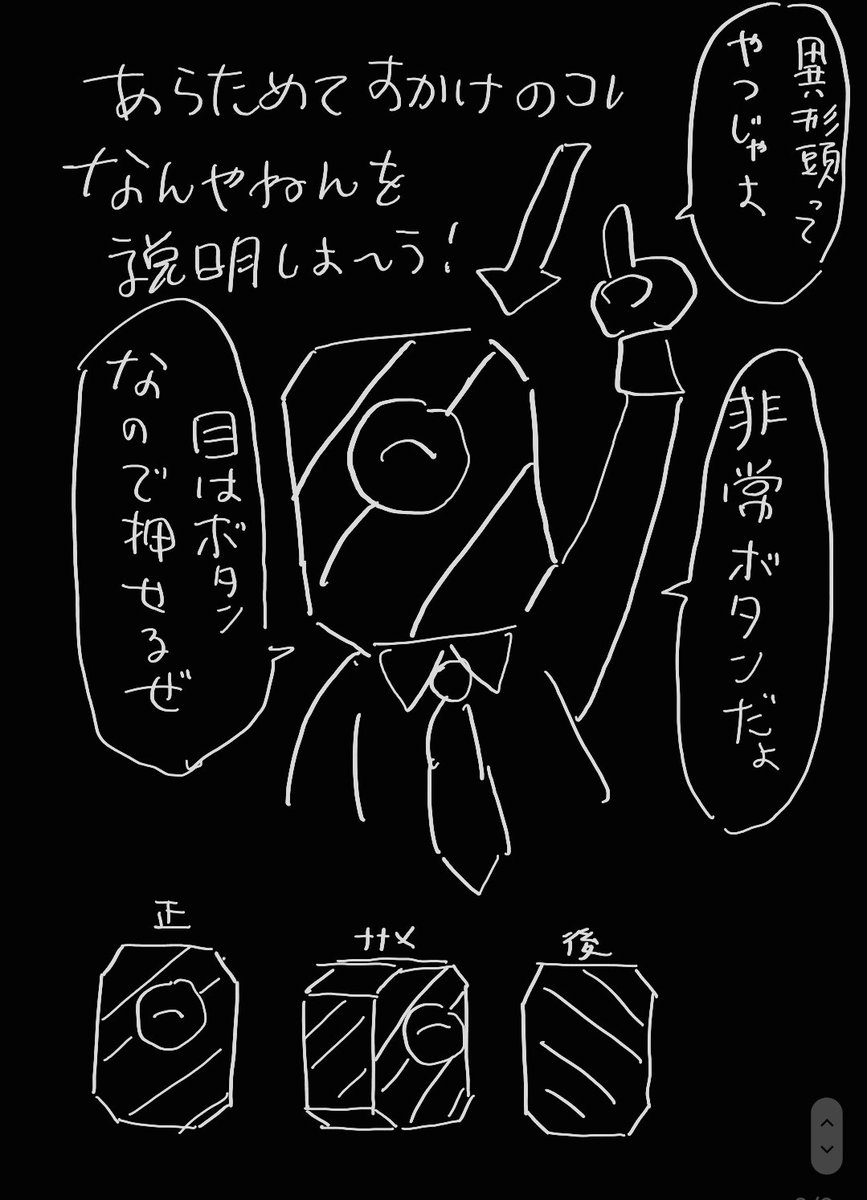 あらためてすかけのコレ
なんやねんを
説明しよ〜う!
異形頭って
やつじゃよ
非常ボタンだよ
目はボタン
なので押せるぜ
正
ナナメ
後